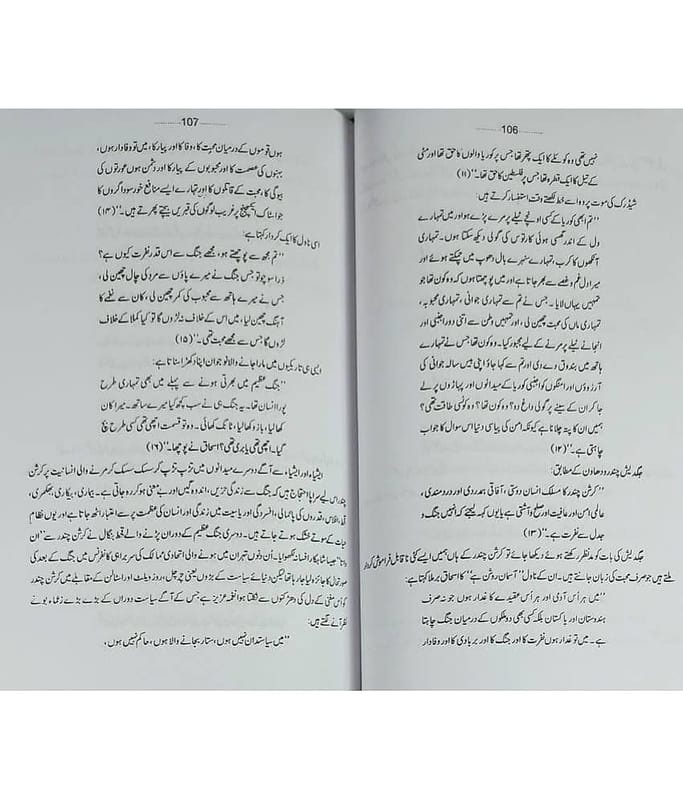 106
نہیں تھی وہ کوئلے کا ایک پتھر تھا جس پر کوریا والوں کا حق تھا اور مٹی
کے تیل کا ایک قطرہ تھا جس پر فلسطین کا حق تھا۔‘‘(۱۱)
شیڈرک کی موت پر وہ اسے خط لکھتے وقت استفسار کرتے ہیں:
’’تم ابھی کوریا کے کسی اونچے ٹیلے پر مرے پڑے ہو اور میں تمہارے
دل کے اندر گھسی ہوئی کارتوس کی گولی دیکھ سکتا ہوں۔ تمہاری
آنکھوں کا کرب، تمہارے سنہرے بال دھوپ میں چمکتے ہوئے اور
میرا دل غم و غصے سے بھر جاتا ہے اور میں پوچھتا ہوں کہ وہ کون تھا جو
تمہیں یہاں لایا۔ جس نے تم سے تمہاری جوانی، تمہاری محبوبہ،
تمہاری ماں کی محبت چھین لی، اور تمہیں وطن سے اتنی دور اجنبی اور
انجانے ٹیلے پر مرنے کے لیے مجبور کیا۔ وہ کون تھا جس نے تمہارے
ہاتھ میں بندوق دے دی اور تم سے کہا جاؤ اپنی بیس سالہ جوانی کی
آرزوؤں اور امنگوں کو اجنبی کوریا کے میدانوں اور پہاڑوں پر لے
جا کر ان کے سینے پر گولی داغ دو؟ وہ کون تھا؟ وہ کونسی طاقت تھی؟
ہمیں ان کا پتہ چلانا ہے کیونکہ امن کی بیاسی دنیا اس سوال کا جواب
چاہتی ہے۔‘‘(۱۲)
جگدیش چندر ودھاون کے مطابق:
’’کرشن چندر کا مسلک انسان دوستی، آفاقی ہمدردی اور دردمندی،
عالمی امن اور عافیت اور صلح و آشتی ہے یا یوں کہہ لیجئے کہ انہیں جنگ و
جدل سے نفرت ہے۔‘‘(۱۳)
جگدیش کی بات کو مدنظر رکھتے ہوئے دیکھا جائے تو کرشن چندر کے ہاں ہمیں ایسے کئی ناقابل فراموش کردار
ملتے ہیں جو صرف محبت کی زبان جانتے ہیں۔ ان کے ناول ’’آسمان روشن ہے‘‘ کا اسحاق برملا کہتا ہے:
’’میں ہر اُس آدمی اور ہر اُس عقیدے کا غدار ہوں جو نہ صرف
ہندوستان اور پاکستان بلکہ کسی بھی دو ملکوں کے درمیان جنگ چاہتا
ہے۔ میں تو غدار ہوں نفرت کا اور جنگ کا اور بربادی کا اور وفادار
107
ہوں قوموں کے درمیان محبت کا، وفا کا اور پیار کا، میں تو وفادار ہوں،
بہنوں کی عصمت کا اور محبوبوں کے پیار کا اور دشمن ہوں عورتوں کی
بیوگی کا، محبت کے قاتلوں کا اور تمہارے ایسے منافع خور سوداگروں کا
جو اسٹاک ایکسچینج پر غریب لوگوں کی قبریں بیچتے پھرتے ہیں۔‘‘(۱۴)
اسی ناول کا ایک کردار کہتا ہے:
’’تم مجھ سے پوچھتے ہو، مجھے جنگ سے اس قدر نفرت کیوں ہے؟
ذرا سوچو تو جس جنگ نے میرے پاؤں سے مرد کی چال چھین لی،
جس نے میرے ہاتھ سے محبوب کی کمر چھین لی، کان سے نغمے کا
آہنگ چھین لیا، میں اس کے خلاف نہ لڑوں گا تو کیا کملا کے خلاف
لڑوں گا جس سے مجھے محبت تھی۔‘‘(۱۵)
ایسی ہی تاریکیوں میں مارا جانے والا نوجوان اپنا دکھڑا سناتا ہے:
’’جنگ عظیم میں بھرتی ہونے سے پہلے میں بھی تمہاری طرح
پورا انسان تھا۔ یہ جنگ ہی نے سب کچھ کیا میرے ساتھ۔ میرا کان
کھا لیا، بازو کھا لیا، ٹانگ کھائی۔ وہ تو قسمت اچھی تھی کسی طرح بچ
گیا۔ اچھی تھی یا بری تھی؟ اسحاق نے پوچھا۔‘‘(۱۶)
ایشیاء اور ایشیاء سے آگے دوسرے میدانوں میں تڑپ تڑپ کر سسک سسک کر مرنے والی انسانیت پر کرشن
چندر اس لیے سراپا احتجاج ہیں کہ جنگ سے زندگی حزیں، اندوہ گیں اور بے معنی ہو کر رہ جاتی ہے۔ بیماری، بیکاری، بھکمری،
افلاس، قدروں کی پامالی، افسردگی اور یاسیت میں زندگی اور انسان کی عظمت پر سے اعتبار اٹھ جاتا ہے اور یوں نظام
حیات کے سوتے خشک ہو جاتے ہیں۔ دوسری جنگ عظیم کے دوران پڑنے والے قحط بنگال نے کرشن چندر سے ’’ان
داتا‘‘ جیسا شاہکار افسانہ لکھوایا۔ اُن دنوں تہران میں ہونے والی اتحادی ممالک کی سربراہی کانفرنس میں جنگ کے بعد کی
صورتحال کا جائزہ لیا جا رہا تھا لیکن دنیائے سیاست کے بڑوں یعنی چرچل، روز ویلٹ اور اسٹالن کے مقابلے میں کرشن چندر
کو اُس مغنی کے دل کی دھڑکنوں سے نکلتا ہوا نغمہ عزیز ہے جس کے آگے سیاست دوراں کے بڑے بڑے زعماء بونے
نظر آنے لگتے ہیں:
’’میں سیاستدان نہیں ہوں، ستار بجانے والا ہوں، حاکم نہیں ہوں،